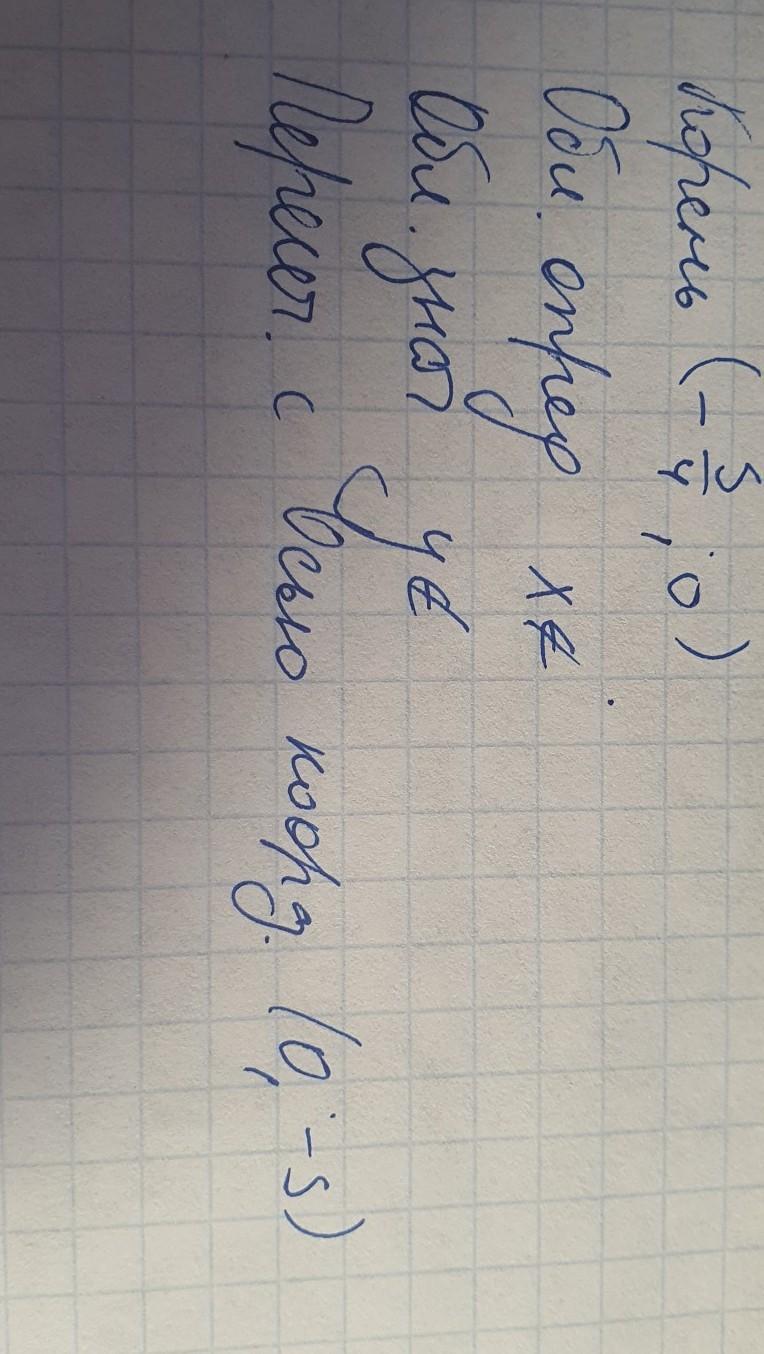 Корень (-5/4; 0)
Обл. опред x∉
Обл. знач y∉
Пересеч. с Осью коорд. (0; -5)